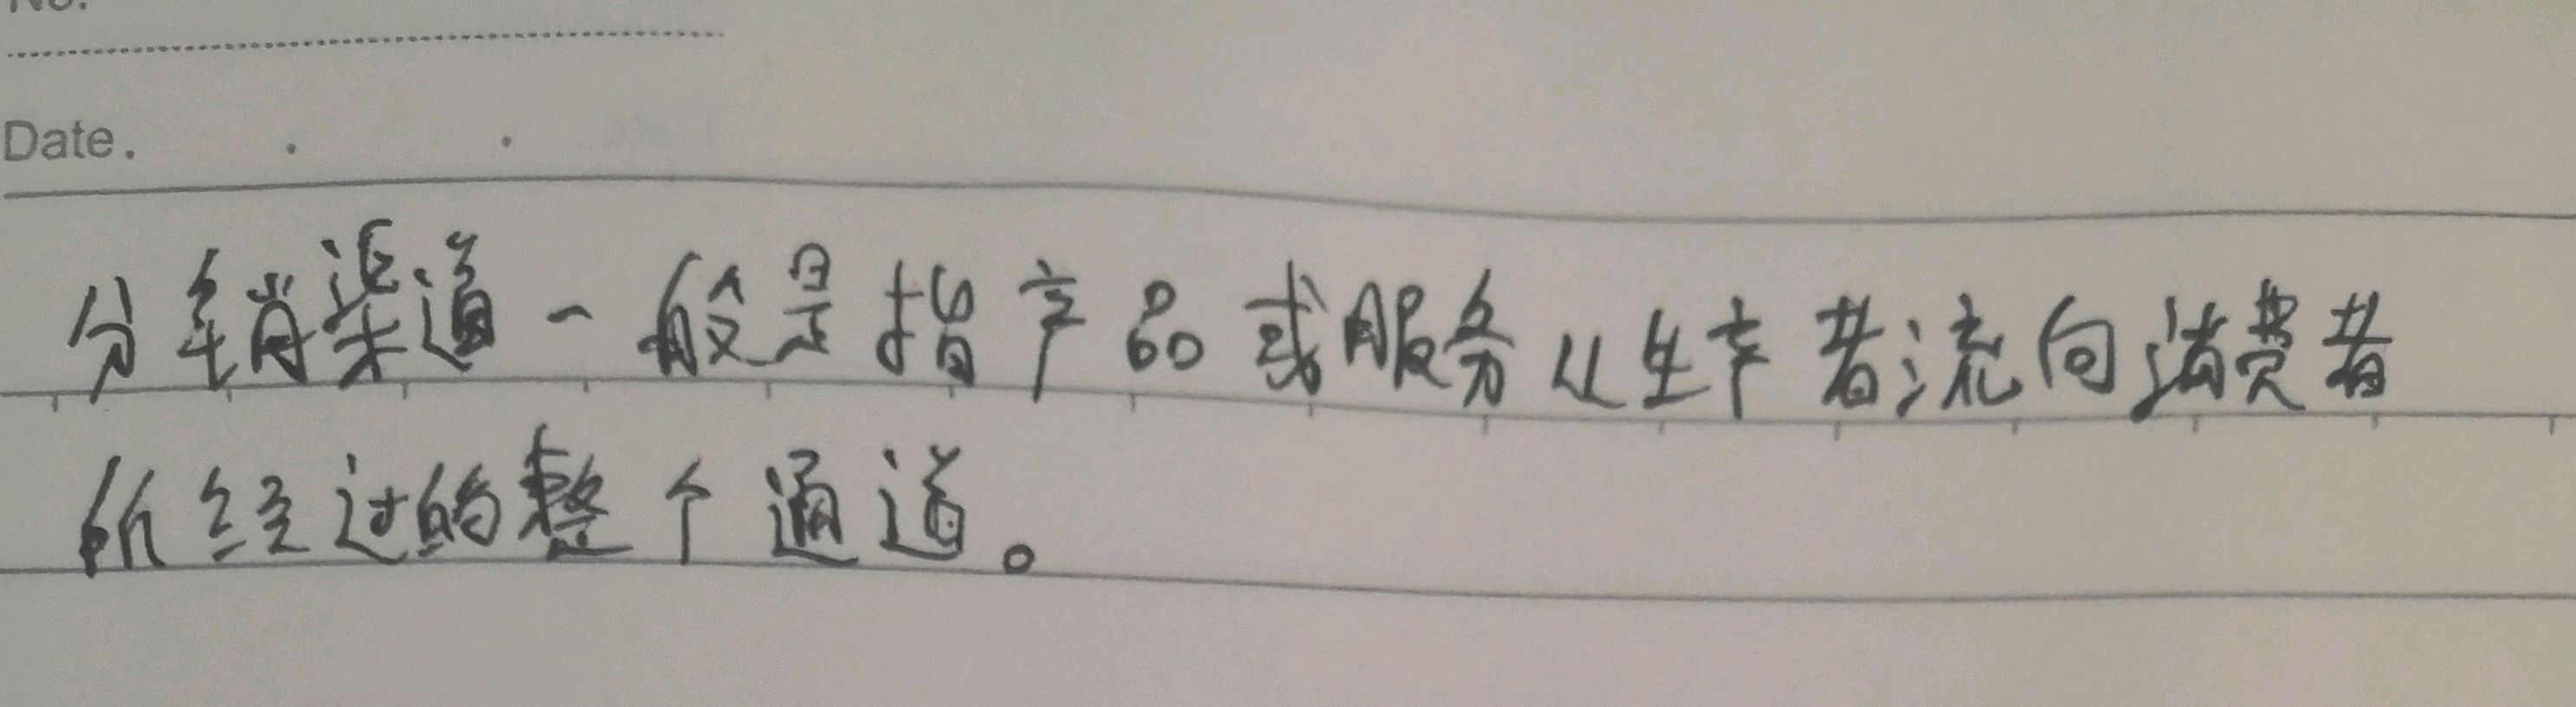 No.
Date.
分销渠道一般是指产品或服务从生产者流向消费者
所经过的整个通道。